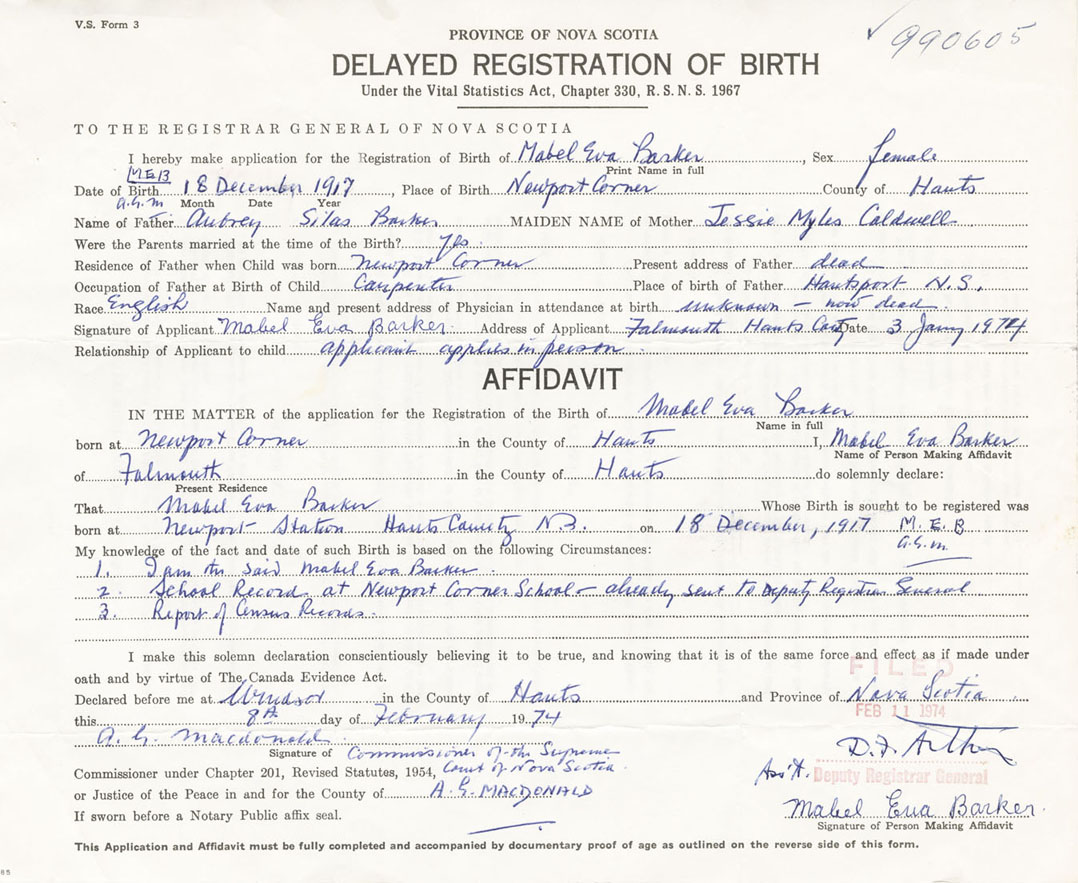 V.S. Form 3
990605
PROVINCE OF NOVA SCOTIA
DELAYED REGISTRATION OF BIRTH
Under the Vital Statistics Act, Chapter 330, R. S. N. S. 1967
TO THE REGISTRAR GENERAL OF NOVA SCOTIA
I hereby make application for the Registration of Birth of Mabel Eva Barker, Sex female
Print Name in full
M E B
Date of Birth 18 December 1917, Place of Birth Newport Corner County of Hants
a.G.m Month Date Year
Name of Father Aubrey Silas Barker MAIDEN NAME of Mother Jessie Myles Caldwell
Were the Parents married at the time of the Birth? Yes.
Residence of Father when Child was born Newport Corner Present address of Father dead
Occupation of Father at Birth of Child Carpenter Place of birth of Father Hantsport N.S.
Race English Name and present address of Physician in attendance at birth unknown – now dead.
Signature of Applicant Mabel Eva Barker. Address of Applicant Falmouth Hants Cnty Date 3 Jany 1974
Relationship of Applicant to child applicant applies in person.
AFFIDAVIT
IN THE MATTER of the application for the Registration of the Birth of Mabel Eva Barker
Name in full
born at Newport Corner in the County of Hants I, Mabel Eva Barker
Name of Person Making Affidavit
of Falmouth in the County of Hants do solemnly declare:
Present Residence
That Mabel Eva Barker Whose Birth is sought to be registered was
born at Newport Station Hants County N.S. on 18 December, 1917 M. E. B
a.G.m.
My knowledge of the fact and date of such Birth is based on the following Circumstances:
1. I am the said Mabel Eva Barker.
2. School Record at Newport Corner School – already sent to Deputy Registrar General
3. Report of Census Records.
I make this solemn declaration conscientiously believing it to be true, and knowing that it is of the same force and effect as if made under
oath and by virtue of The Canada Evidence Act.
FILED
Declared before me at Windsor in the County of Hants and Province of Nova Scotia
FEB 11 1974
this 8th day of February 1974
A. G. Macdonald
Signature of Commissioner of the Supreme
Commissioner under Chapter 201, Revised Statutes, 1954, Court of Nova Scotia
Ass't. Deputy Registrar General
or Justice of the Peace in and for the County of A. G. MACDONALD
Mabel Eva Barker.
If sworn before a Notary Public affix seal.
Signature of Person Making Affidavit
This Application and Affidavit must be fully completed and accompanied by documentary proof of age as outlined on the reverse side of this form.
85